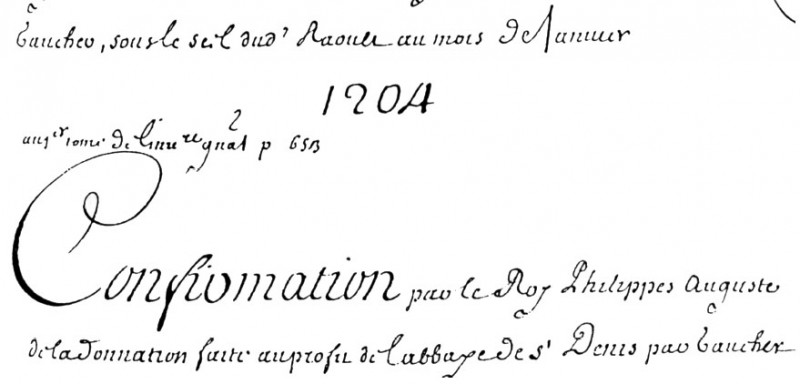 Gaucher, sous le scel dud.t Raoul au mois de Janvier
1204
au j.er tome de l'inv.re gnal p 653
Confirmation par le Roy Philippes Auguste
de la donnation faite au profit de l'abbaye de S.t Denis par Gaucher